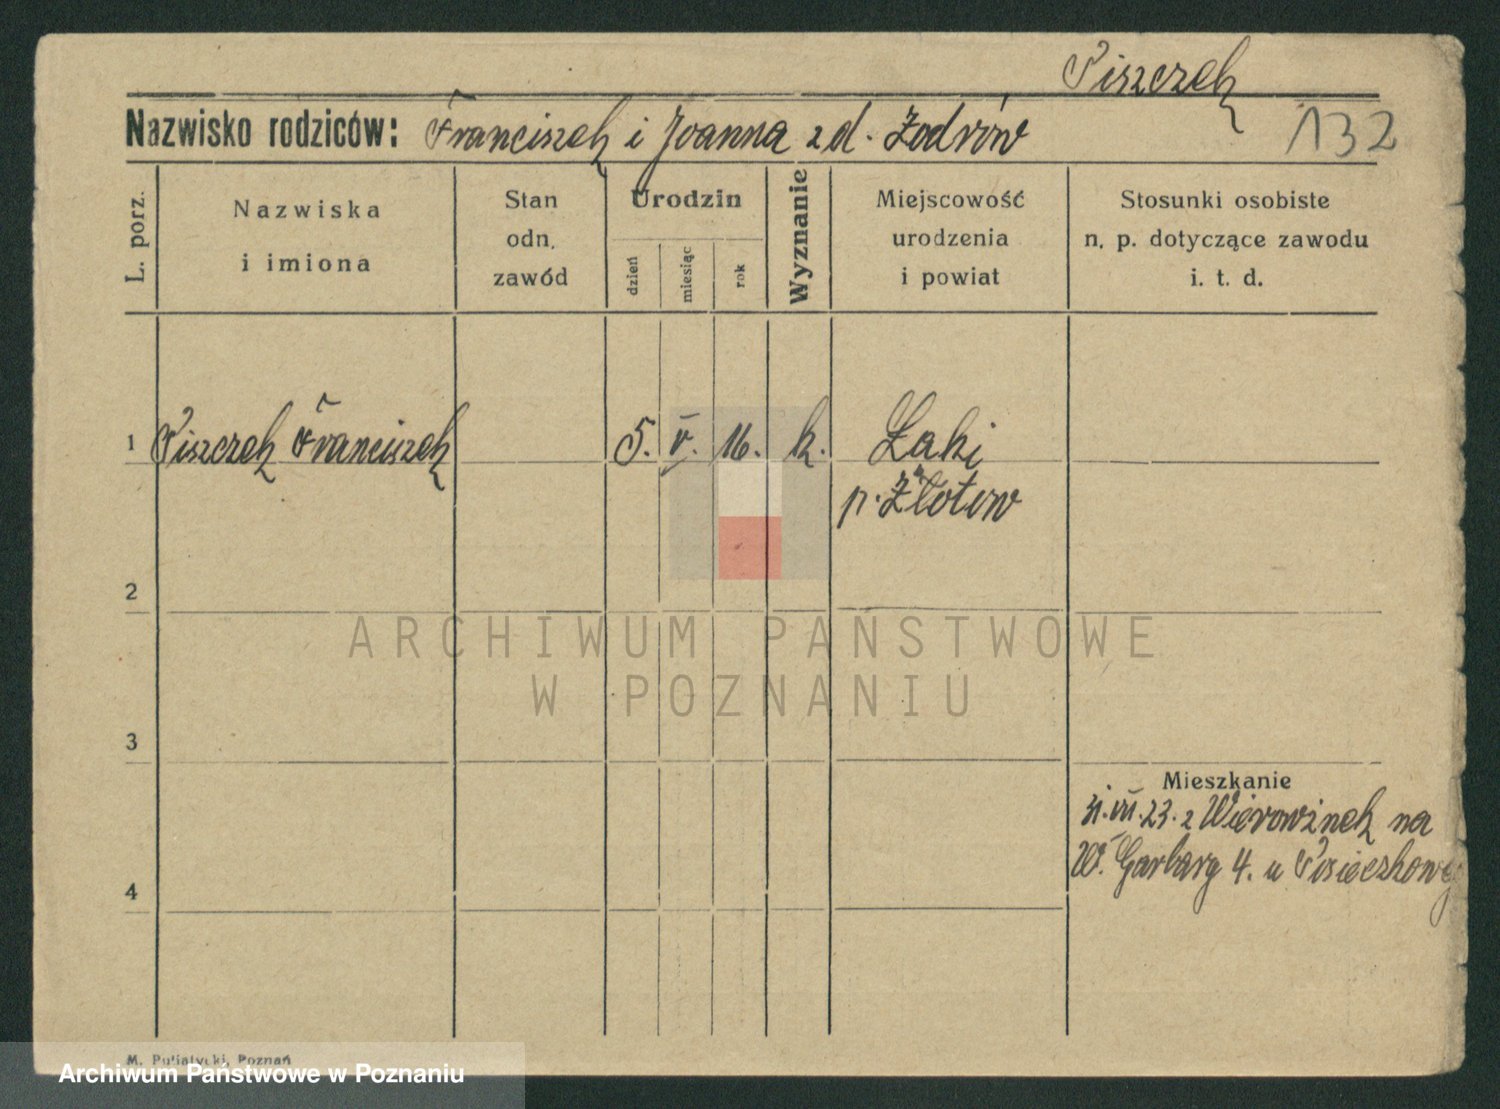 Piszczek
132
Nazwisko rodziców: Franciszek i Joanna z d. Zodrów
L. porz.
Nazwiska
i imiona
Stan
odn.
zawód
Urodzin
dzień
miesiąc
rok
Wyznanie
Miejscowość
urodzenia
i powiat
Stosunki osobiste
n. p. dotyczące zawodu
i. t. d.
1 Piszczek Franciszek 5. V. 16. k. Łaki
p. Złotow
2
ARCHIWUM PAŃSTWOWE
W POZNANIU
3
Mieszkanie
31. VII. 23. z Wierowinek na
W. Garbary 4. u
4
M. Puliatycki, Poznań
Archiwum Państwowe w Poznaniu